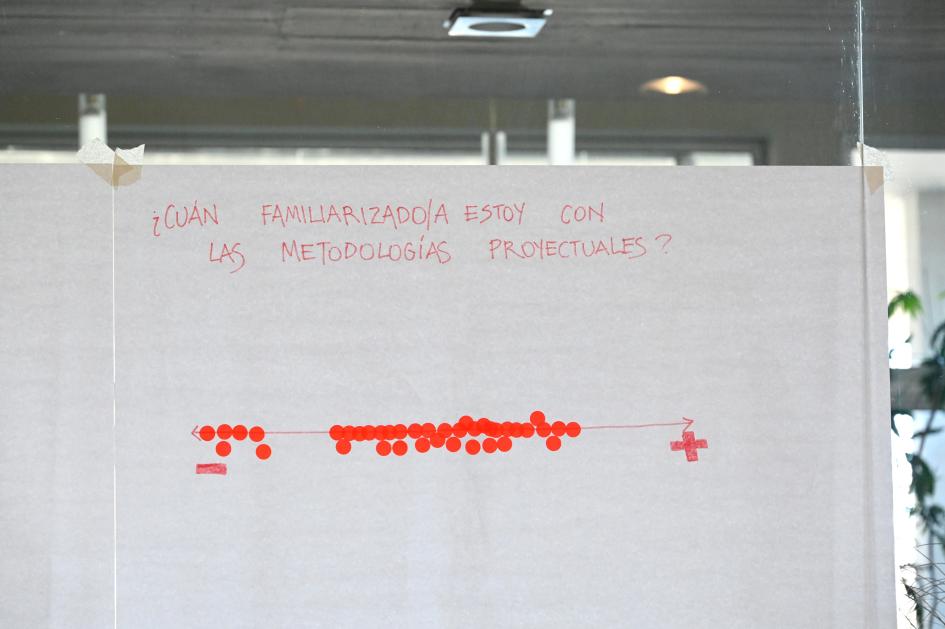 ¿CUÁN FAMILIARIZADO/A ESTOY CON
LAS METODOLOGÍAS PROYECTUALES?
- +